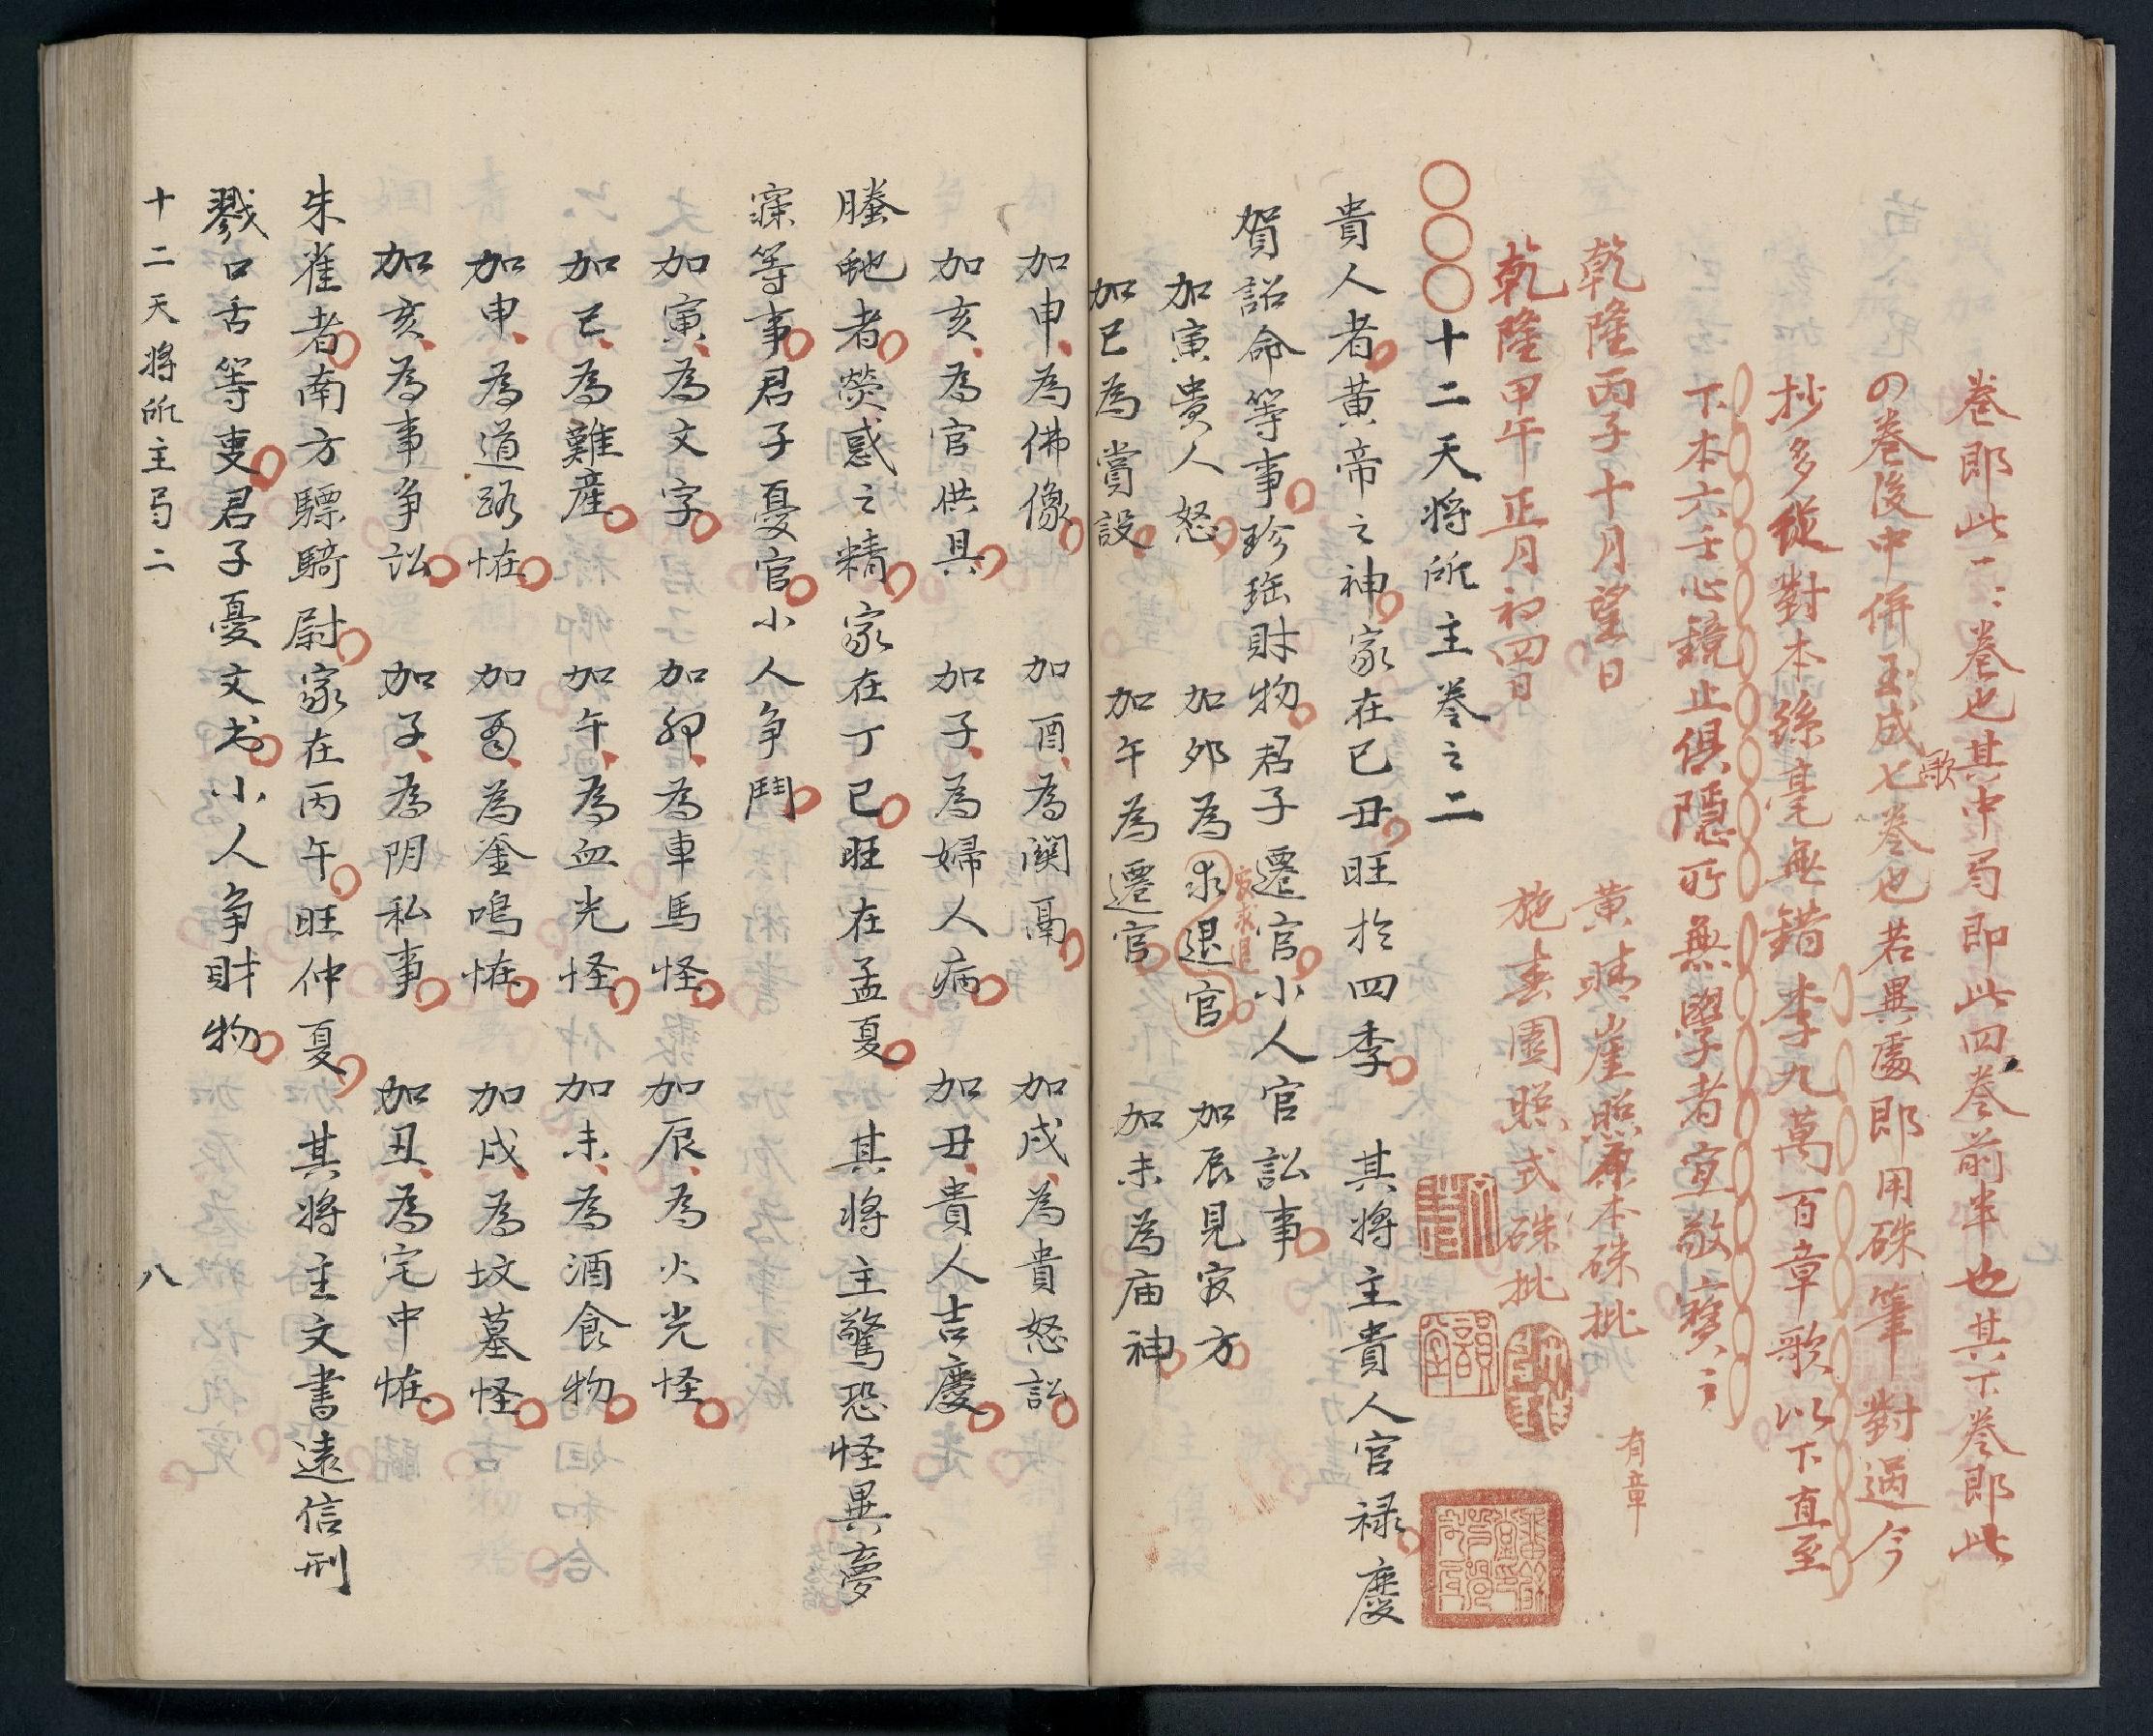 卷即此一二卷也其中局即此四卷前半也其下卷即此
の卷後中併玉成歌七卷也若異處即用硃筆對過今
抄多從對本絲毫無錯李九萬百章歌以下直至
下本六壬心鏡止俱隱所無學者宜敬寶之
乾隆丙子十月望日 黄晴崖照原本硃批 有章
乾隆甲午正月初四日 施春園照式硃批
〇〇〇十二天将所主卷之二
貴人者黄帝之神家在已丑旺於四季 其将主貴人官禄慶
賀詔命等事珍瑶財物君子遷官小人官訟事
加寅貴人怒 加夘為求退官 加辰見㝡方
家求退
加巳為賞設 加午為遷官 加未為庙神
加申為佛像 加酉為闗鬲 加戌為貴怒訟
加亥為官供具 加子為婦人病 加丑貴人吉慶
螣虵者熒惑之精家在丁巳旺在孟夏 其将主驚恐怪異夢
寐等事君子憂官小人争鬪
加寅為文字 加夘為車馬怪 加辰為火光怪
加巳為難産 加午為血光怪 加未為酒食物
加申為道路恠 加酉為釜鳴恠 加戌為坟墓怪
加亥為事争訟 加子為阴私事 加丑為宅中恠
朱雀者南方驃騎尉家在丙午旺仲夏 其将主文書遠信刑
戮口舌等叓君子憂文书小人争財物
十二天将所主局二 八